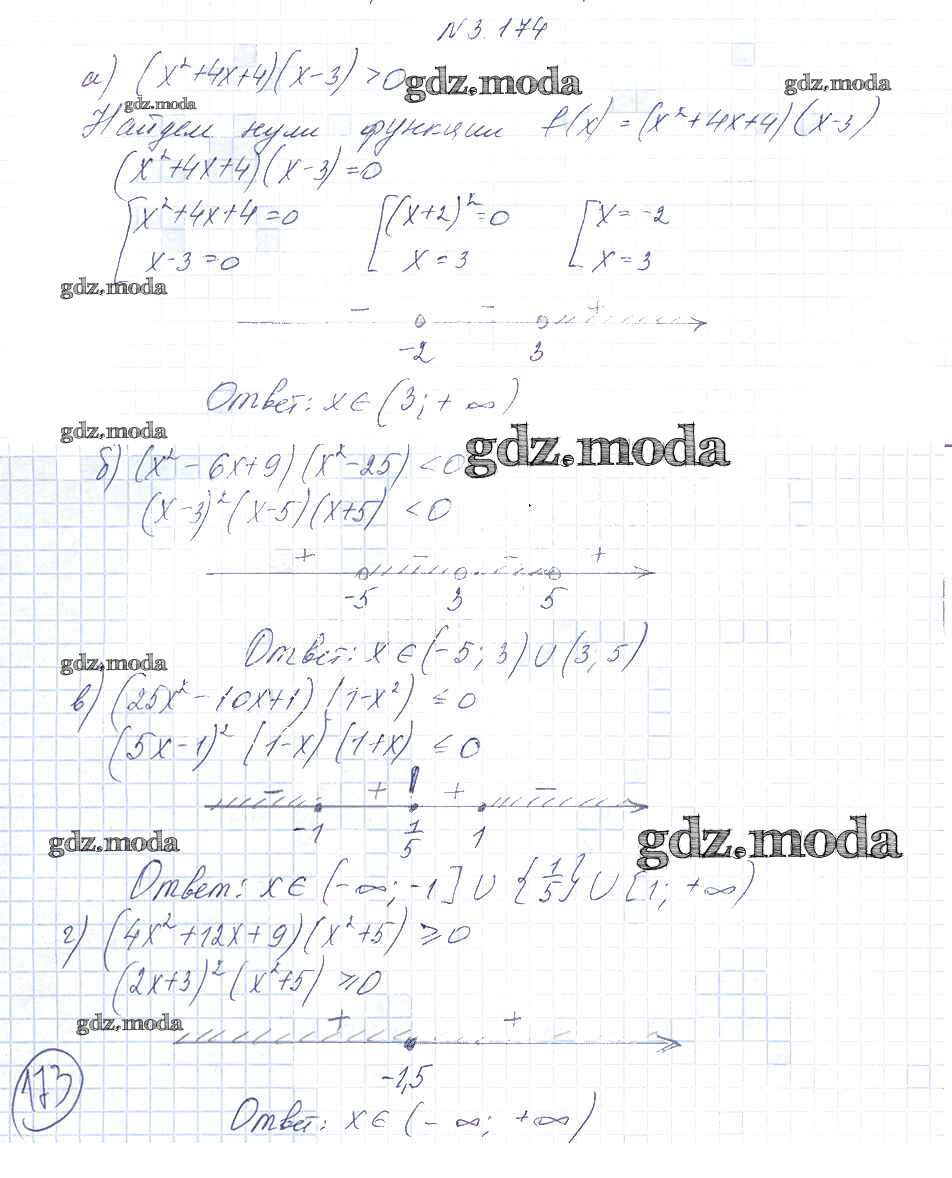 N 3.174
а) (x²+4x+4)(x-3) >0
gdz.moda
gdz.moda
gdz.moda
Найдем нули функции f(x) = (x²+4x+4)(x-3)
(x²+4x+4)(x-3)=0
x²+4x+4=0 (x+2)²=0 x=-2
x-3=0 x=3 x=3
gdz.moda
- - +
-2 3
Ответ: x∈(3;+∞)
gdz.moda
gdz.moda
б) (x²-6x+9)(x²-25)<0
(x-3)²(x-5)(x+5)<0
+ - - +
-5 3 5
Ответ: x∈(-5;3)∪(3;5)
gdz.moda
в) (25x²-10x+1)(1-x²)≤0
(5x-1)²(1-x)(1+x)≤0
- + ! + -
-1 1/5 1
gdz.moda
gdz.moda
Ответ: x∈(-∞;-1]∪{1/5}∪[1;+∞)
г) (4x²+12x+9)(x²+5)≥0
(2x+3)²(x²+5)≥0
gdz.moda
+ +
-1,5
173
Ответ: x∈(-∞;+∞)